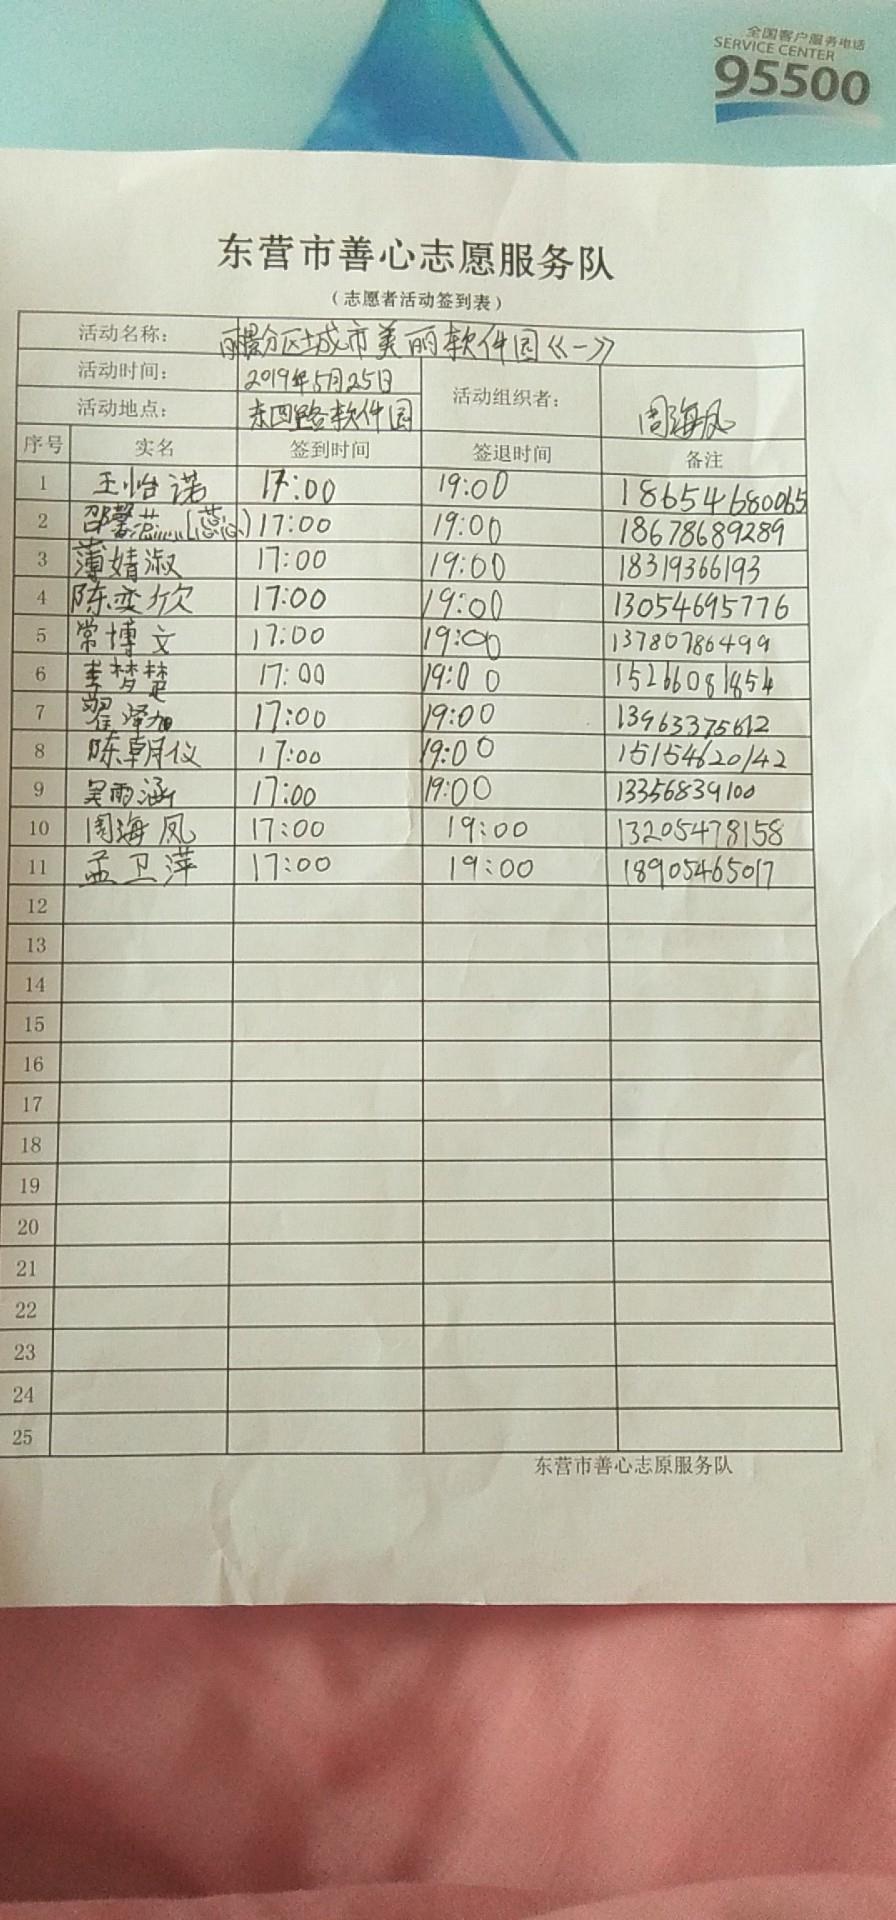 全国客户服务电话
SERVICE CENTER
95500
东营市善心志愿服务队
(志愿者活动签到表)
活动名称: 丽景分区城市美丽软件园《一》
活动时间: 2019年5月25日 活动组织者: 周海凤
活动地点: 东四路软件园
序号 实名 签到时间 签退时间 备注
1 王怡诺 17:00 19:00 18654680065
2 邵馨蕊 (蕊) 17:00 19:00 18678689289
3 薄婧淑 17:00 19:00 18319366193
4 陈奕欣 17:00 19:00 13054695776
5 常博文 17:00 19:00 13780786499
6 李梦楚 17:00 19:00 15266081854
7 翟泽旭 17:00 19:00 13963375612
8 陈朝仪 17:00 19:00 15154620142
9 吴雨涵 17:00 19:00 13356839100
10 周海凤 17:00 19:00 13205478158
11 孟卫萍 17:00 19:00 18905465017
12
13
14
15
16
17
18
19
20
21
22
23
24
25
东营市善心志原服务队